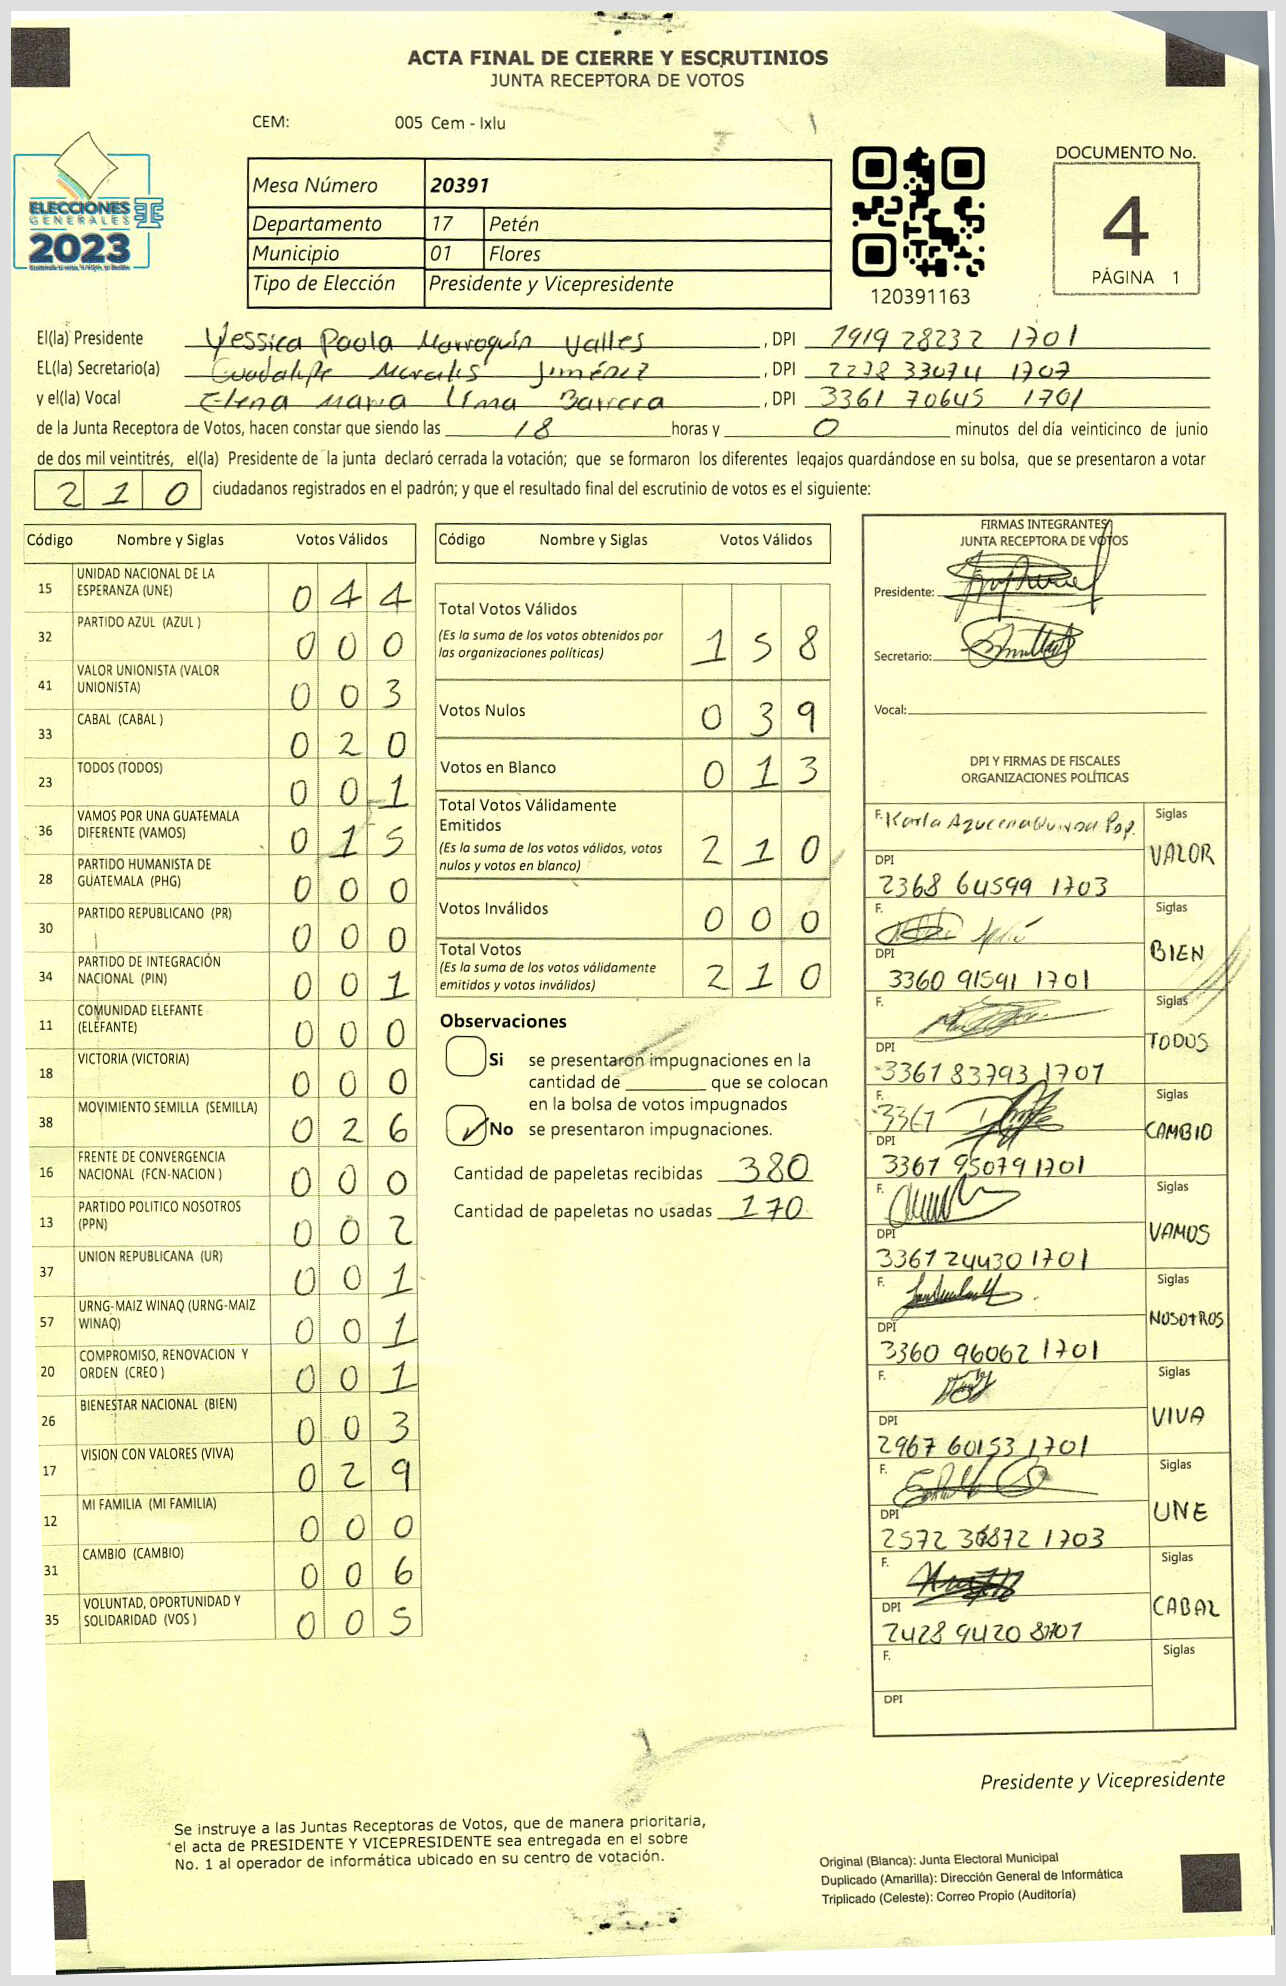 ACTA FINAL DE CIERRE Y ESCRUTINIOS
JUNTA RECEPTORA DE VOTOS
CEM: 005 Cem - Ixlu
ELECCIONES
GENERALES
2023
Mesa Número 20391
Departamento 17 Petén
Municipio 01 Flores
Tipo de Elección Presidente y Vicepresidente
120391163
DOCUMENTO No.
4
PÁGINA 1
El(la) Presidente Yessica Paola Marroquín Valles, DPI 1919 28232 1701
EL(la) Secretario(a) Guadalupe Morales Jiménez, DPI 2278 33074 1707
y el(la) Vocal Elena Maria Lima Barrera, DPI 3361 70645 1701
de la Junta Receptora de Votos, hacen constar que siendo las 18 horas y 0 minutos del día veinticinco de junio
de dos mil veintitrés, el(la) Presidente de la junta declaró cerrada la votación; que se formaron los diferentes legajos quardándose en su bolsa, que se presentaron a votar
210 ciudadanos registrados en el padrón; y que el resultado final del escrutinio de votos es el siguiente:
Código Nombre y Siglas Votos Válidos
15 UNIDAD NACIONAL DE LA ESPERANZA (UNE) 044
32 PARTIDO AZUL (AZUL ) 000
41 VALOR UNIONISTA (VALOR UNIONISTA) 003
33 CABAL (CABAL ) 020
23 TODOS (TODOS) 001
36 VAMOS POR UNA GUATEMALA DIFERENTE (VAMOS) 015
28 PARTIDO HUMANISTA DE GUATEMALA (PHG) 000
30 PARTIDO REPUBLICANO (PR) 000
34 PARTIDO DE INTEGRACIÓN NACIONAL (PIN) 001
11 COMUNIDAD ELEFANTE (ELEFANTE) 000
18 VICTORIA (VICTORIA) 000
38 MOVIMIENTO SEMILLA (SEMILLA) 026
16 FRENTE DE CONVERGENCIA NACIONAL (FCN-NACION ) 000
13 PARTIDO POLITICO NOSOTROS (PPN) 002
37 UNION REPUBLICANA (UR) 001
57 URNG-MAIZ WINAQ (URNG-MAIZ WINAQ) 001
20 COMPROMISO, RENOVACION Y ORDEN (CREO ) 001
26 BIENESTAR NACIONAL (BIEN) 003
17 VISION CON VALORES (VIVA) 029
12 MI FAMILIA (MI FAMILIA) 000
31 CAMBIO (CAMBIO) 006
35 VOLUNTAD, OPORTUNIDAD Y SOLIDARIDAD (VOS ) 005
Código Nombre y Siglas Votos Válidos
Total Votos Válidos
(Es la suma de los votos obtenidos por las organizaciones políticas) 158
Votos Nulos 039
Votos en Blanco 013
Total Votos Válidamente Emitidos
(Es la suma de los votos válidos, votos nulos y votos en blanco) 210
Votos Inválidos 000
Total Votos
(Es la suma de los votos válidamente emitidos y votos inválidos) 210
Observaciones
Si se presentaron impugnaciones en la
cantidad de ________ que se colocan
en la bolsa de votos impugnados
No se presentaron impugnaciones.
Cantidad de papeletas recibidas 380
Cantidad de papeletas no usadas 170
FIRMAS INTEGRANTES
JUNTA RECEPTORA DE VOTOS
Presidente:
Secretario:
Vocal:
DPI Y FIRMAS DE FISCALES
ORGANIZACIONES POLÍTICAS
F. Karla Azucena Pop. Siglas
DPI VALOR
2368 64599 1703
F. Siglas
DPI BIEN
3360 91591 1701
F. Siglas
DPI TODOS
3361 83793 1701
F. 3361 Siglas
DPI CAMBIO
3361 95079 1701
F. Siglas
DPI VAMOS
3361 24430 1701
F. Siglas
DPI NOSOTROS
3360 96062 1701
F. Siglas
DPI VIVA
2967 60153 1701
F. Siglas
DPI UNE
2572 1703
F. Siglas
DPI CABAL
2428 9420
F. Siglas
DPI
Presidente y Vicepresidente
Se instruye a las Juntas Receptoras de Votos, que de manera prioritaria,
el acta de PRESIDENTE Y VICEPRESIDENTE sea entregada en el sobre
No. 1 al operador de informática ubicado en su centro de votación.
Original (Blanca): Junta Electoral Municipal
Duplicado (Amarilla): Dirección General de Informática
Triplicado (Celeste): Correo Propio (Auditoría)